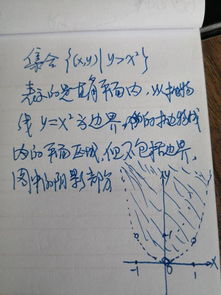 集合{(x,y)|y>x²}
表示的是直角平面内,以抛物
线 y=x² 为边界,的抛物线
内的平面区域,但不包括边界,
图中的阴影部分
y
x
-1
0
1
1